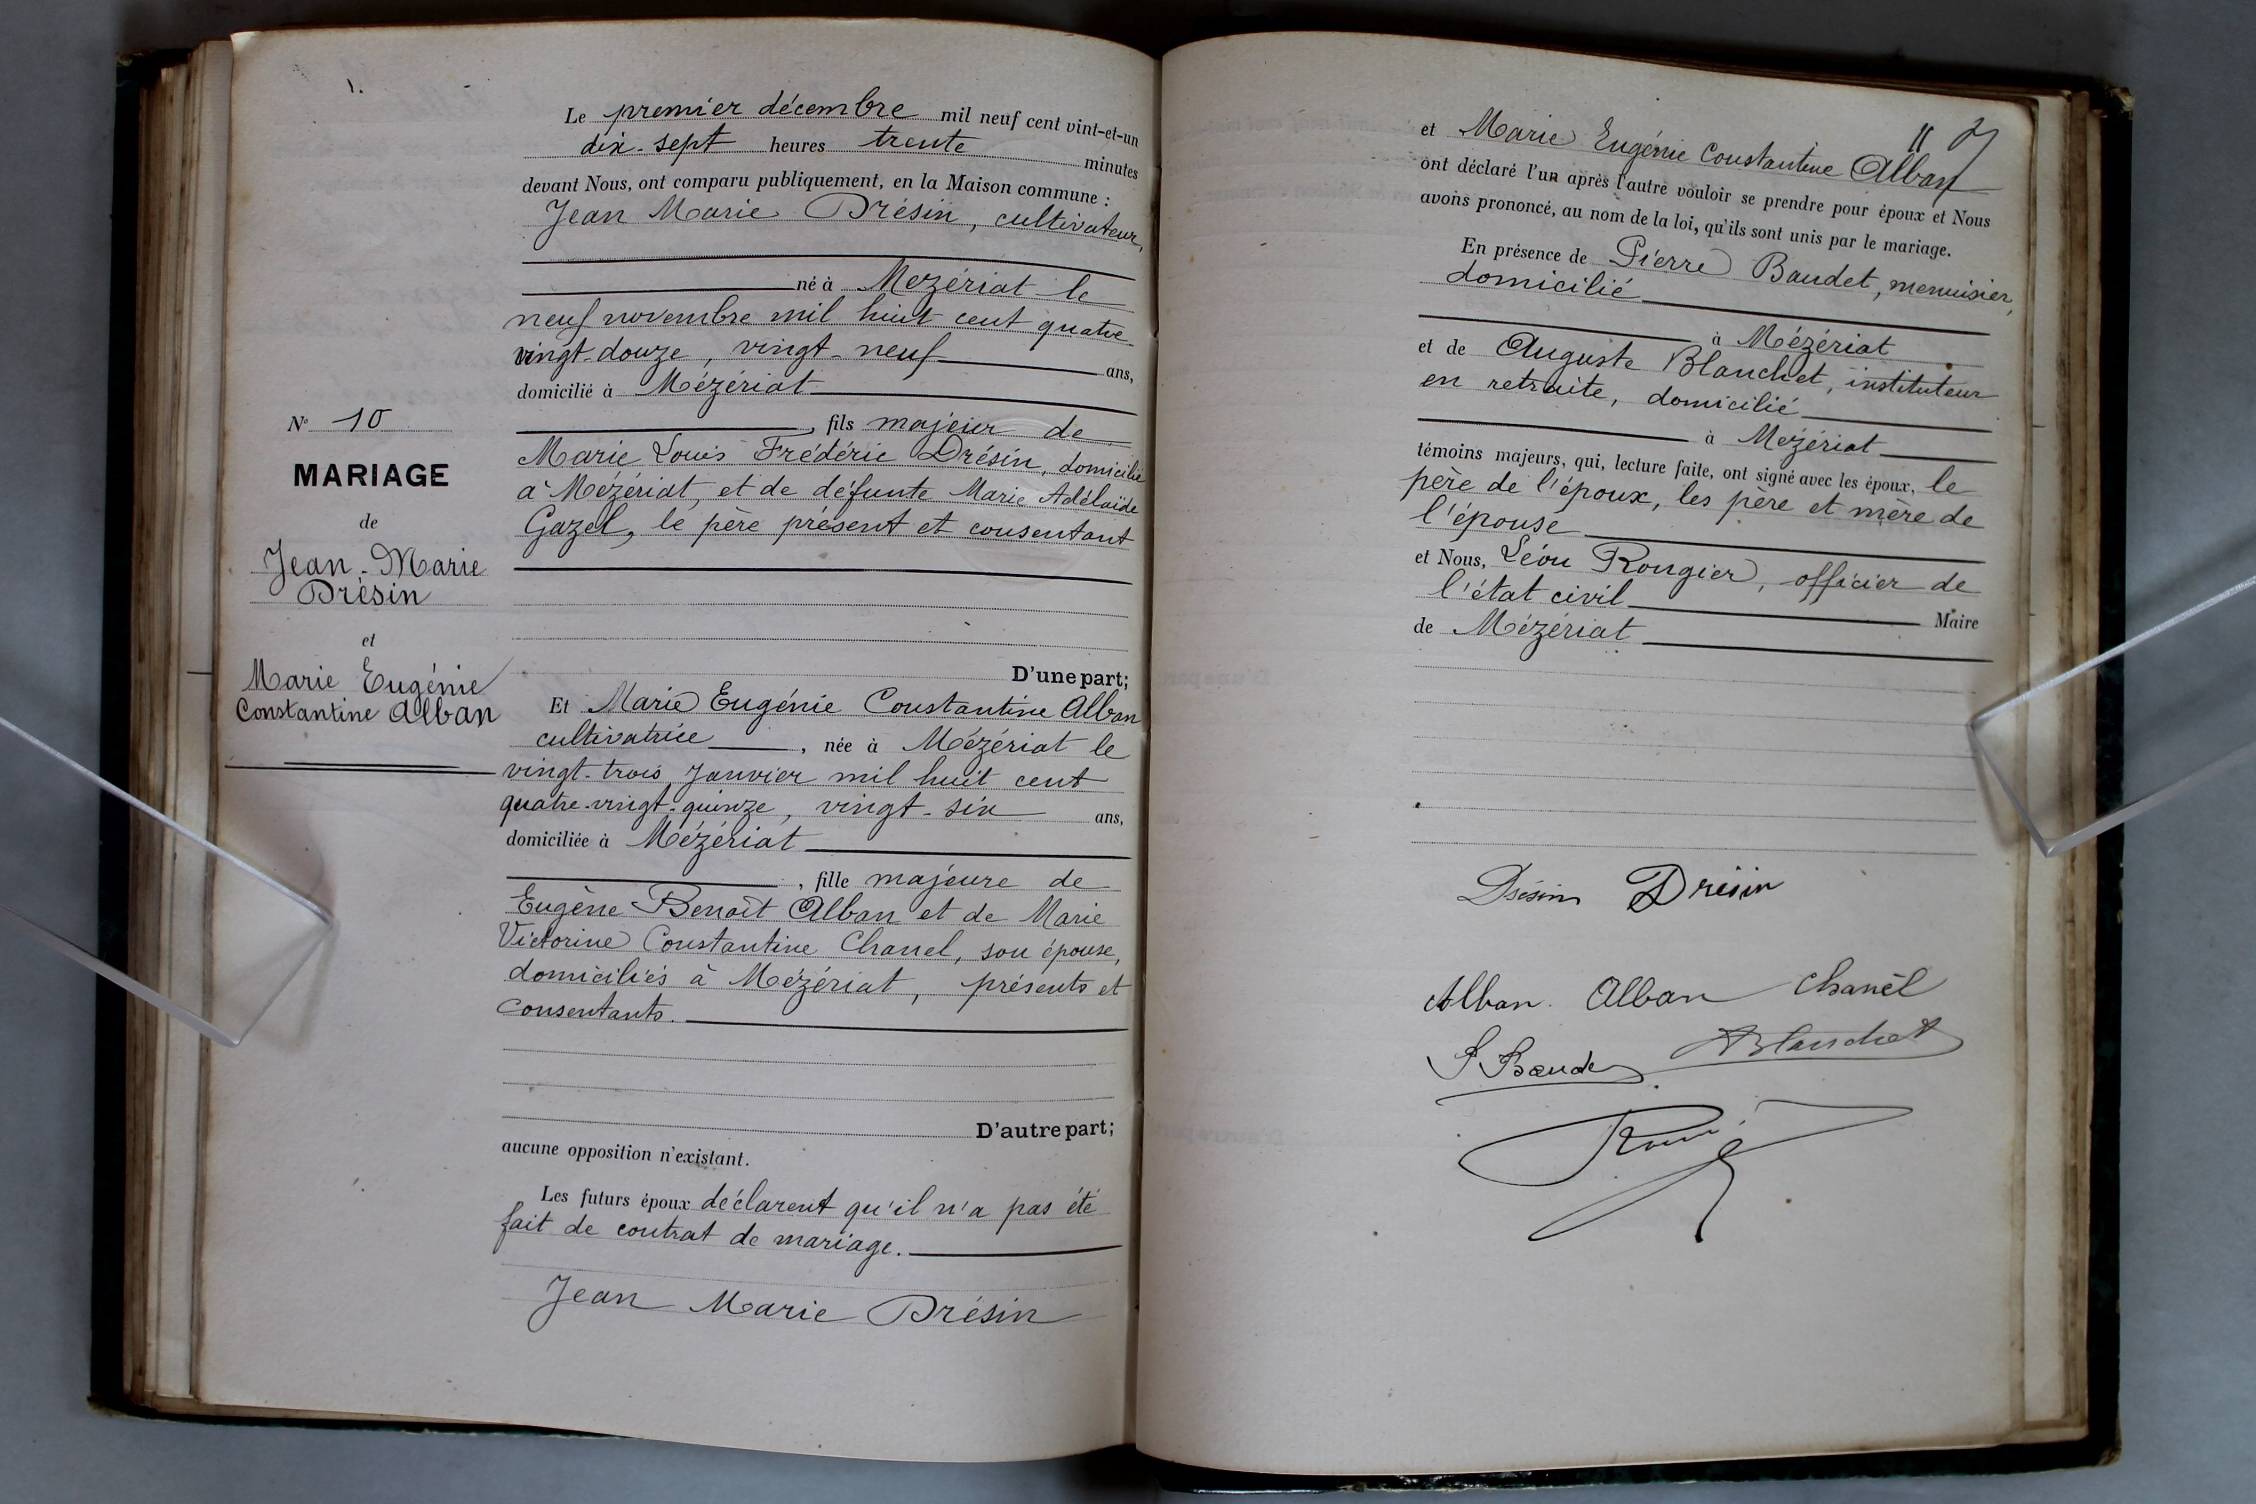 Le premier décembre mil neuf cent vint-et-un
dix-sept heures trente minutes
devant Nous, ont comparu publiquement, en la Maison commune :
Jean Marie Drésin, cultivateur,
né à Mézériat le
neuf novembre mil huit cent quatre
vingt-douze, vingt-neuf ans,
domicilié à Mézériat
N° 10
MARIAGE
de
Jean-Marie
Drésin
et
Marie Eugénie
Constantine Alban
, fils majeur de
Marie Louis Frédéric Drésin, domicilié
à Mézériat, et de défunte Marie Adélaïde
Gazel, le père présent et consentant
D'une part;
Et Marie Eugénie Constantine Alban
cultivatrice, née à Mézériat le
vingt-trois Janvier mil huit cent
quatre-vingt-quinze, vingt-six ans,
domiciliée à Mézériat
, fille majeure de
Eugène Benoît Alban et de Marie
Victorine Constantine Chanel, son épouse,
domiciliés à Mézériat, présents et
consentants.
D'autre part;
aucune opposition n'existant.
Les futurs époux déclarent qu'il n'a pas été
fait de contrat de mariage.
Jean Marie Drésin
et Marie Eugénie Constantine Alban
ont déclaré l'un après l'autre vouloir se prendre pour époux et Nous
avons prononcé, au nom de la loi, qu'ils sont unis par le mariage.
En présence de Pierre Baudet, menuisier,
domicilié
à Mézériat
et de Auguste Blanchet, instituteur
en retraite, domicilié
à Mézériat
témoins majeurs, qui, lecture faite, ont signé avec les époux, le
père de l'époux, les père et mère de
l'épouse
et Nous, Léon Rougier, officier de
l'état civil Maire
de Mézériat
Drésin Drésin
Alban. Alban Chanel
P Baudet ABlanchet